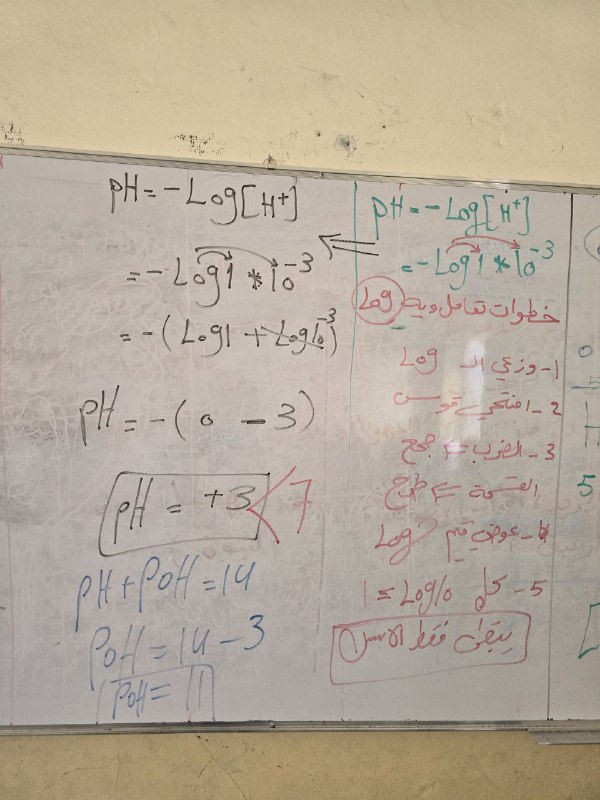 pH = - Log[H⁺]
= - Log 1 * 10⁻³
= -( Log1 + Log10⁻³ )
pH = -( 0 - 3 )
pH = +3 < 7
pH + pOH = 14
pOH = 14 - 3
pOH = 11
pH = - Log[H⁺]
= - Log 1 * 10⁻³
خطوات تعامل ويه Log
1- وزعي الـ Log
2- افتحي قوس
3- الضرب ⇐ جمع
القسمة ⇐ طرح
4- عوضي قيم Log
5- كل Log10 = 1
يبقى فقط الاس
0
H
5